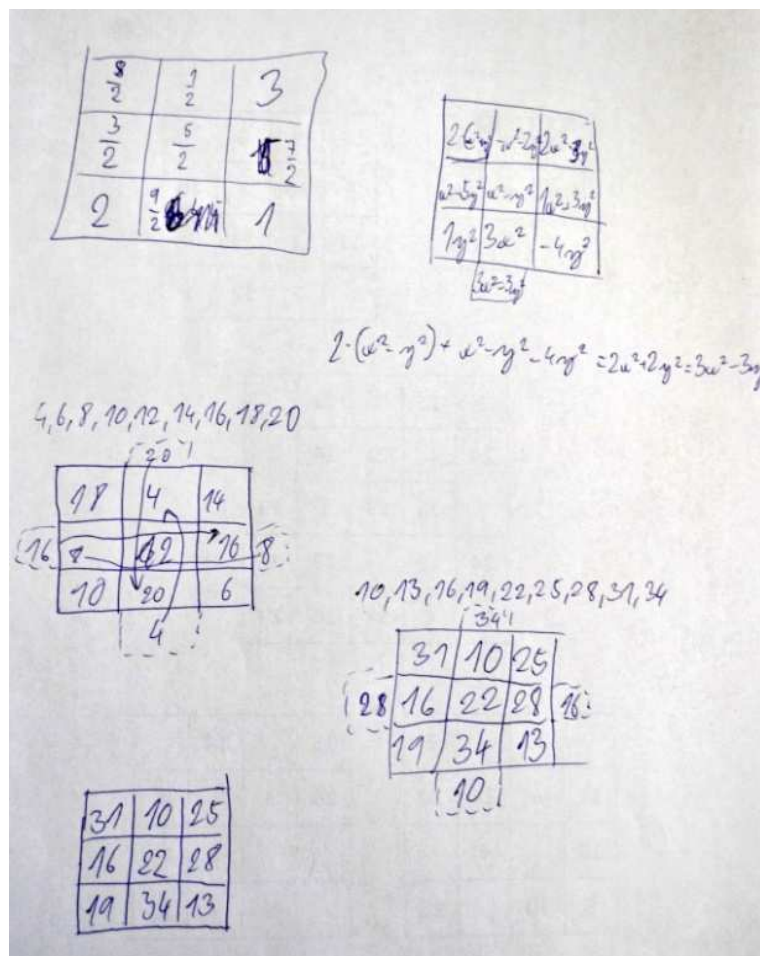 8/2 1/2 3
3/2 5/2 7/2
2 9/2 1
-x²-2y² 2x²-3y²
x²-5y² x²-y² 1x²+3y²
1y² 3x² -4y²
3x²-3y²
2·(x²-y²)+x²-y²-4y²=2x²+2y²=3x²-3y
4,6,8,10,12,14,16,18,20
20
18 4 14
16 8 12 16 8
10 20 6
4
10,13,16,19,22,25,28,31,34
34
31 10 25
28 16 22 28 16
19 34 13
10
31 10 25
16 22 28
19 34 13